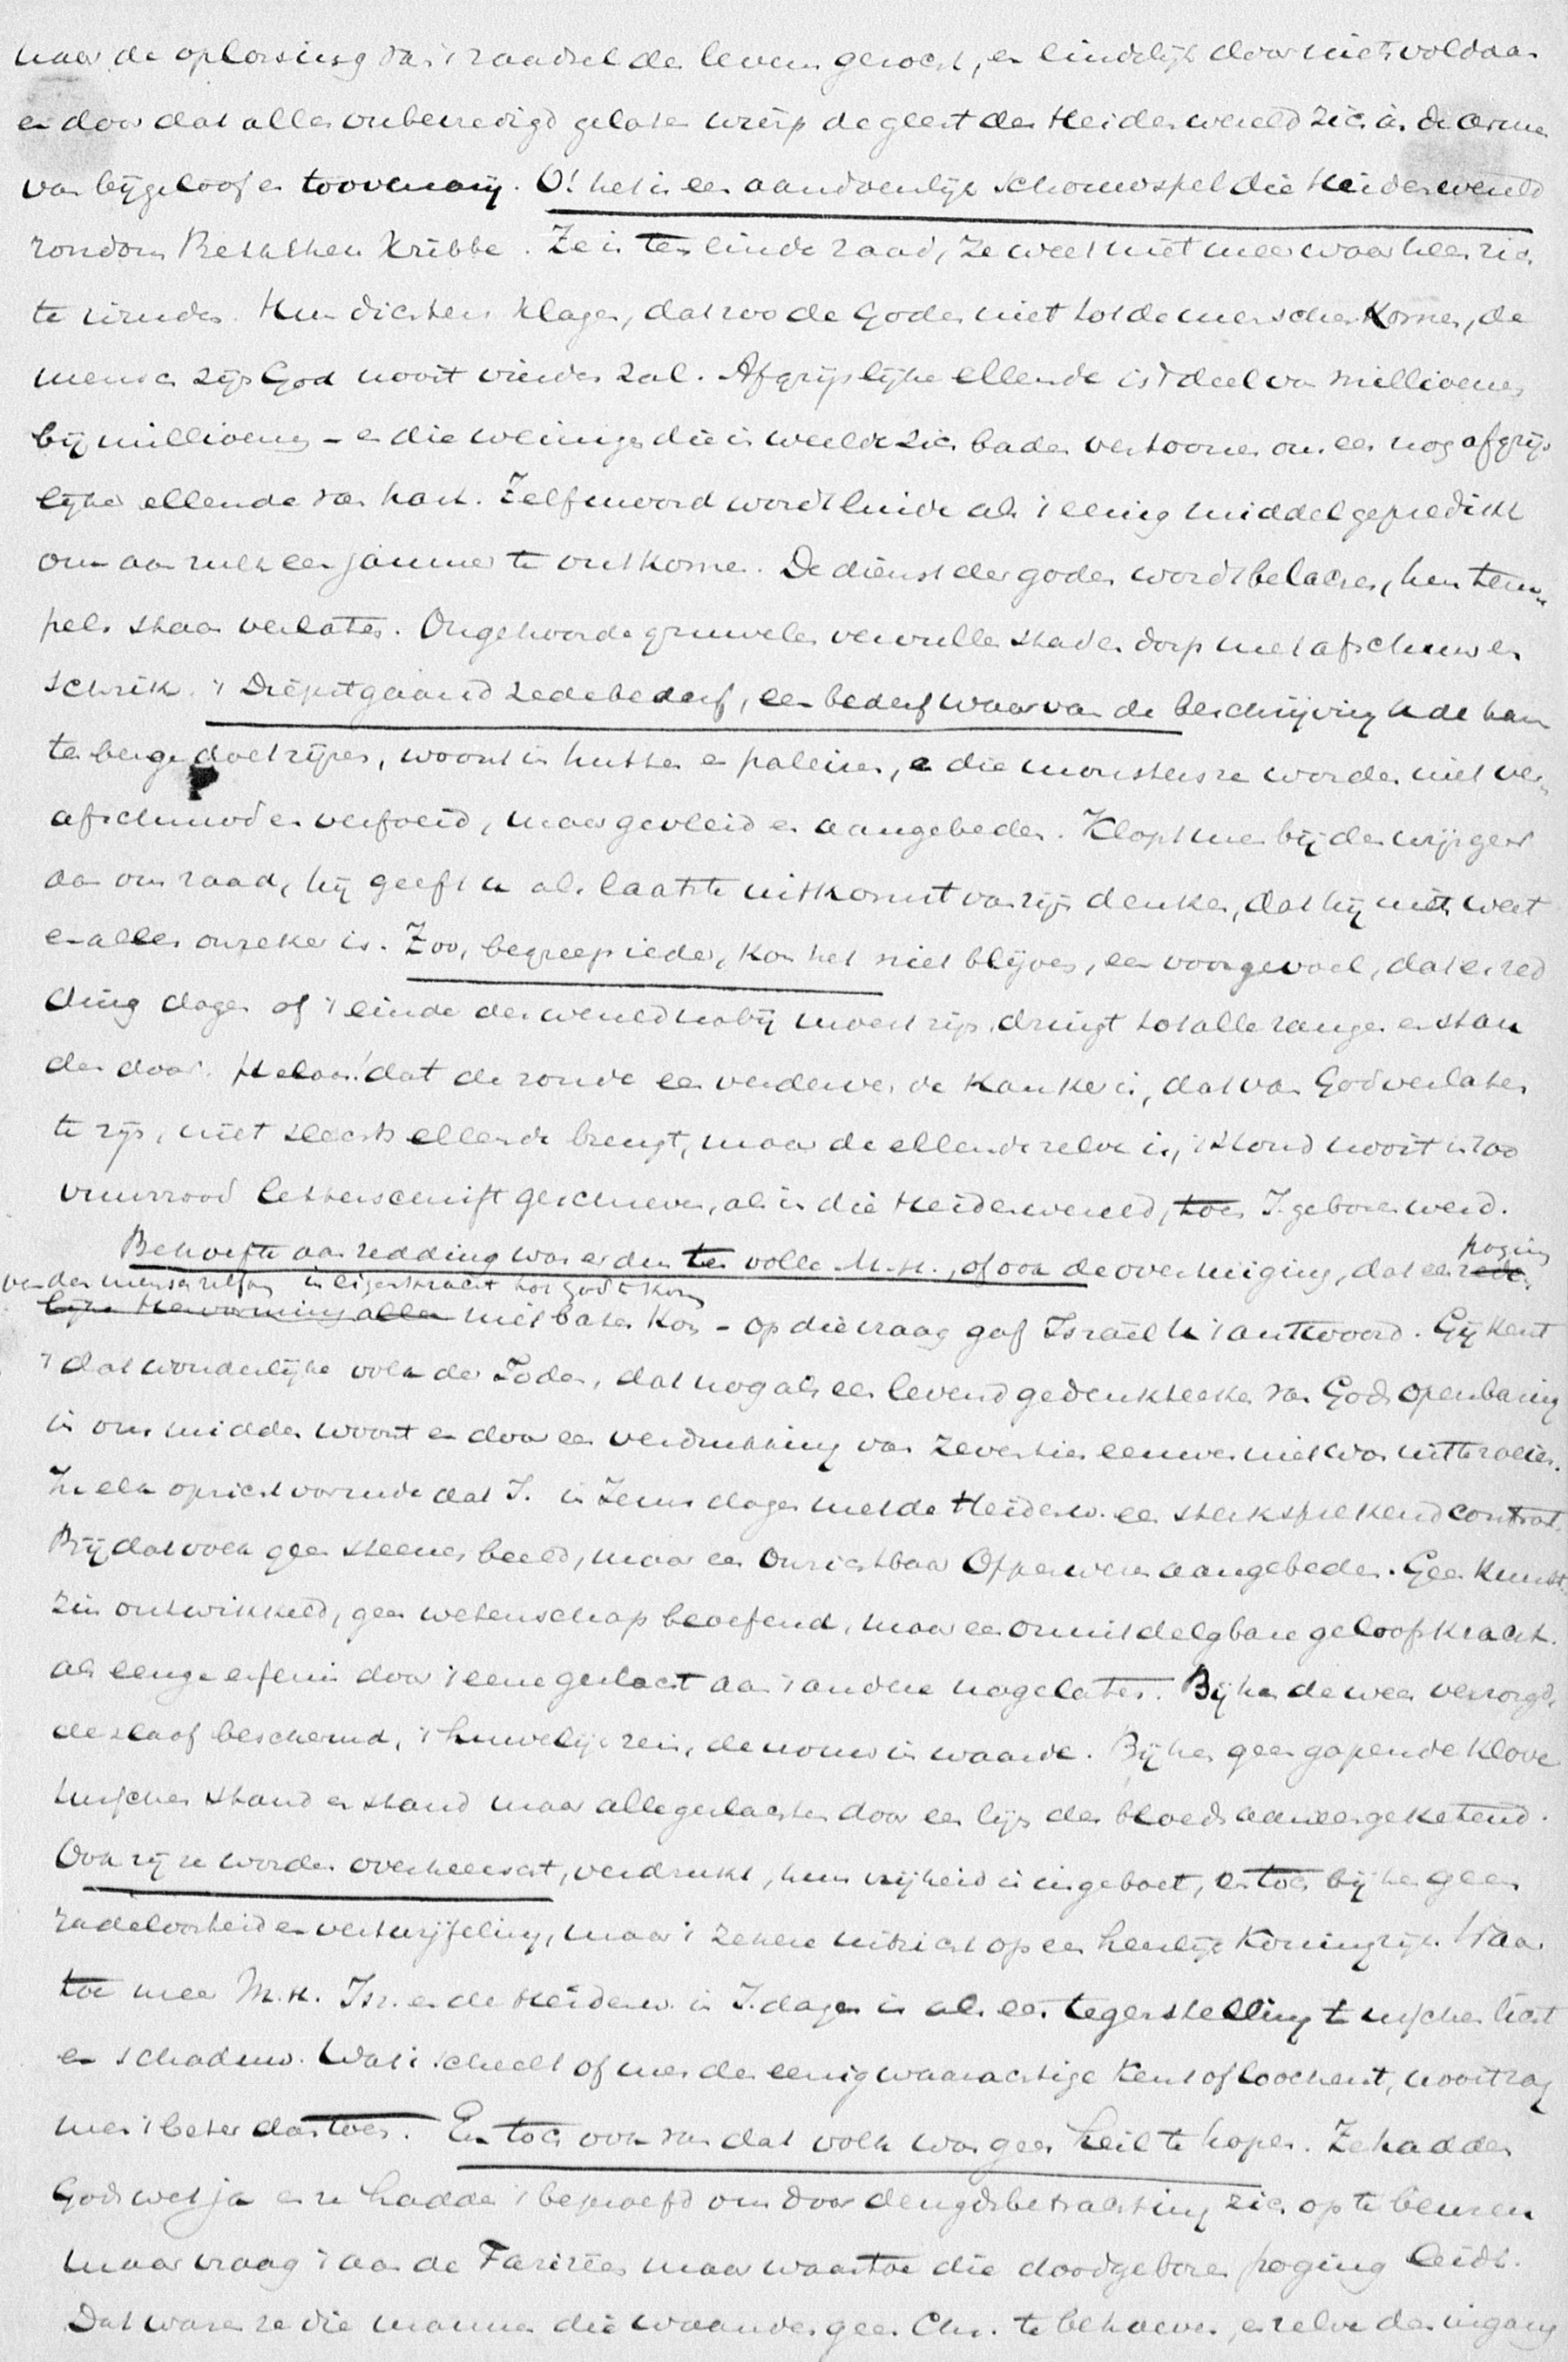 naar de oplossing van 't raadsel des levens gezocht, en eindelijk door niets voldaan
en door dat alles onbevredigd gelaten wierp de geest der Heidenwereld zich in de armen
van bijgeloof en toovenarij. O! het is een aandoenlijk schouwspel die Heidenwereld
rondom Bethlehems kribbe. Ze is ten einde raad, ze weet niet meer waarheen zich
te wenden. Hun dichters klagen, dat zoo de Goden niet tot de menschen komen, de
mensch zijn God nooit vinden zal. Afgrijslijke ellende is 't deel van millioenen
bij millioenen – en die weinigen die in weelde zich baden vertoonen ons een nog afgrijs
lijker ellende van hart. Zelfmoord wordt luide als 't eenig middel gepredikt
om aan zulk een jammer te ontkomen. De dienst der goden wordt belachen, hun tem-
pels staan verlaten. Ongehoorde gruwelen vervullen stad en dorp met afschuw en
schrik. 't Diepstgaand zedebederf, een bederf waarvan de beschrijving u de haren
te berge doet rijzen, woont in hutten en paleizen, en die monsters ze worden niet ver-
afschuwd en verfoeid, maar gevleid en aangebeden. Klopt men bij den wijsgeer
aan om raad, hij geeft u als laatste uitkomst van zijn denken, dat hij niets weet
en alles onzeker is. Zoo, begreep ieder, kon het niet blijven, een voorgevoel, dat er red
ding dagen of 't einde der wereld nabij moest zijn dringt tot alle rangen en stan
den door. Helaas! dat de zonde een verderven de kanker is, dat van God verlaten
te zijn, niet slechts ellende brengt, maar de ellende zelve is, 't stond nooit in zoo
vuurrood letterschrift geschreven, als in die Heidenwereld, toen J. geboren werd.
Behoefte aan redding was er dus ten volle M.H., of ook de overtuiging, dat een rede poging
van den mensch zelf om in eigen kracht tot God te komen
lijke Hervorming alleen niet baten kon – op die vraag gaf Israël u 't antwoord. Gij kent
't dat wonderlijke volk der Joden, dat nog als een levend gedenkteeken van Gods openbaring
in ons midden woont en door een verdrukking van zeventien eeuwen niet was uitteroeien.
In elk opzicht vormde dat I. in Jezus dagen met de Heidenw. een sterksprekend contrast.
Bij dat volk geen steenen beeld, maar een Onzichtbaar Opperwezen aangebeden. Geen kunst
zin ontwikkeld, geen wetenschap beoefend, maar een onuitdelgbare geloofskracht.
als eenige erfenis door 't eene geslacht aan 't andere nagelaten. Bij hen de wees verzorgd,
de slaaf beschermd, 't huwelijk rein, de vrouw in waarde. Bij hen geen gapende klove
tusschen stand en stand maar alle geslachten door een lijn des bloeds aaneengeketend.
Ook zij ze worden overheerscht, verdrukt, hun vrijheid is ingeboet, en toch bij hen geen
radeloosheid en vertwijfeling, maar 't zekere uitzicht op een heerlijk Koningrijk. Waar
toe meer M.H. Isr. en de Heidenw. in J. dagen is als een tegenstelling tusschen licht
en schaduw. Wat 't scheelt of men den eenig waarachtige kent of loochent, nooit zag
men 't beter dan toen. En toch ook van dat volk was geen heil te hopen. Ze hadden
Gods wet ja en ze hadden 't beproefd om door deugdsbetrachting zich op te beuren
maar vraag 't aan de Farizeën maar waartoe die doodgeboren poging leidt.
Dat waren ze die mannen die waanden geen Chr. te behoeven, en zelve den ingang